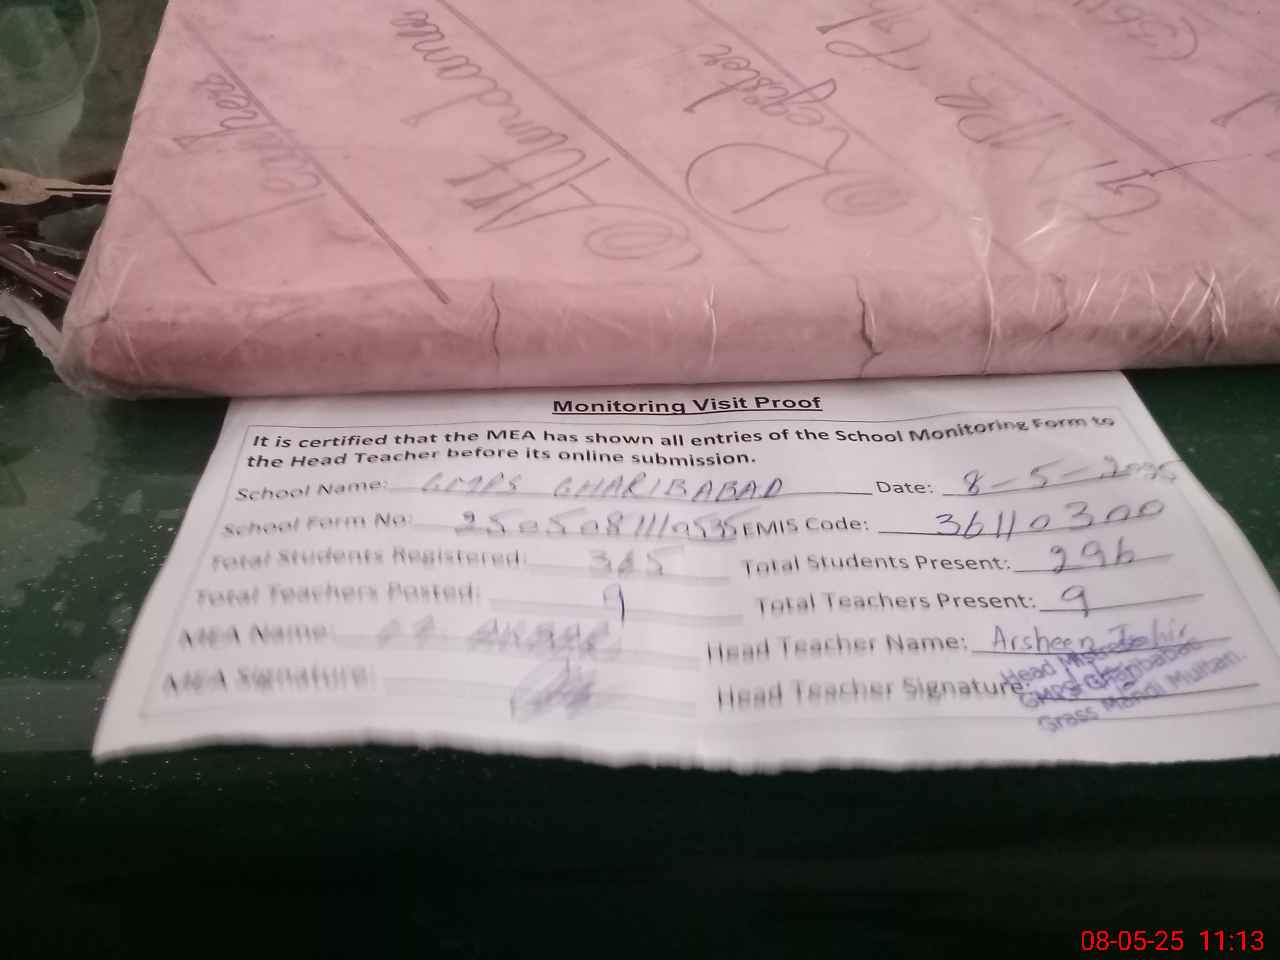 Teachers
Attendance
Register
GMPS
Monitoring Visit Proof
It is certified that the MEA has shown all entries of the School Monitoring Form to
the Head Teacher before its online submission.
School Name: GMPS GHARIBABAD Date: 8-5-2025
School Form No: EMIS Code: 36110300
Total Students Registered: Total Students Present: 296
Total Teachers Posted: 9 Total Teachers Present: 9
MEA Name: Head Teacher Name: Arsheen Tahir
MEA Signature: Head Teacher Signature:
Head Mistress
GMPS Gharibabad
Grass Mandi Multan.
08-05-25 11:13